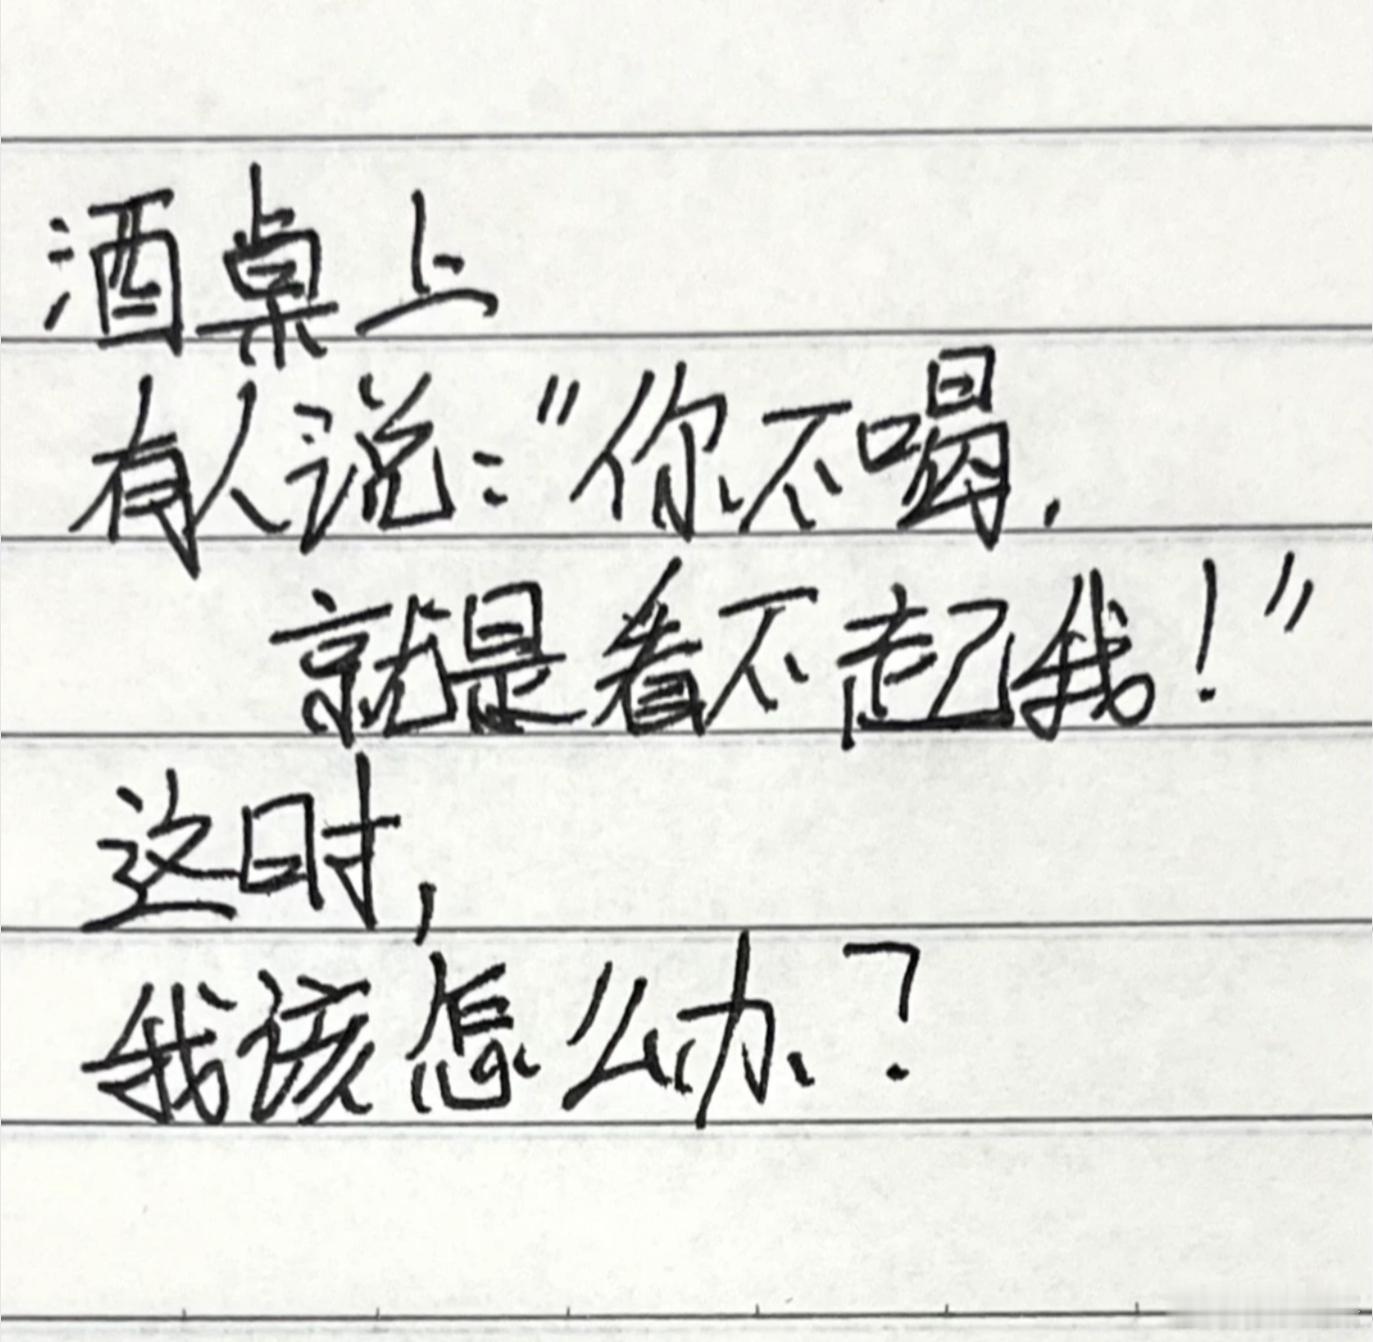 酒桌上
有人说:"你不喝,
就是看不起我!"
这时,
我该怎么办?